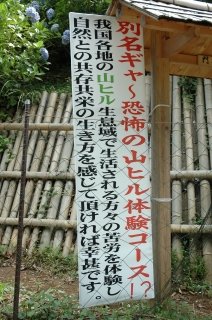 別名ギャ〜恐怖の山ヒル体験コース!?
我国各地の山ヒル生息域で生活される方々の苦労を体験し
自然との共存共栄の生き方を感じて頂ければ幸甚です。